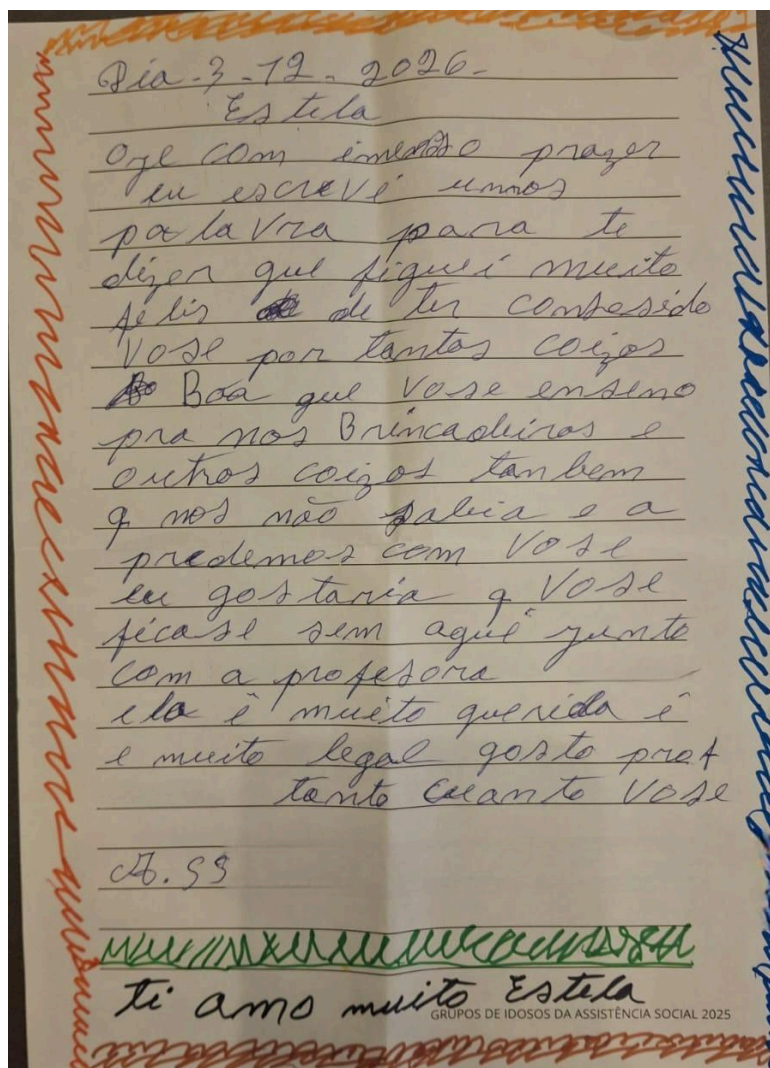 Dia-3-12-2026-
Estela
Oge com imenso prazer
eu escrevé umas
palavra para te
dizer que figuei muito
felis de ter consesido
Vose por tantas coizas
Boa que Vose enseno
pra nos Brincadeiras e
outras coizas tanbem
q nos não sabia e a
predemos com Vose
eu gostaria q Vose
ficase sem aqui junto
com a profesora
ela é muito querida é
e muito legal gosto prof
tanto cuanto Vose
ti amo muito Estela
GRUPOS DE IDOSOS DA ASSISTÊNCIA SOCIAL 2025